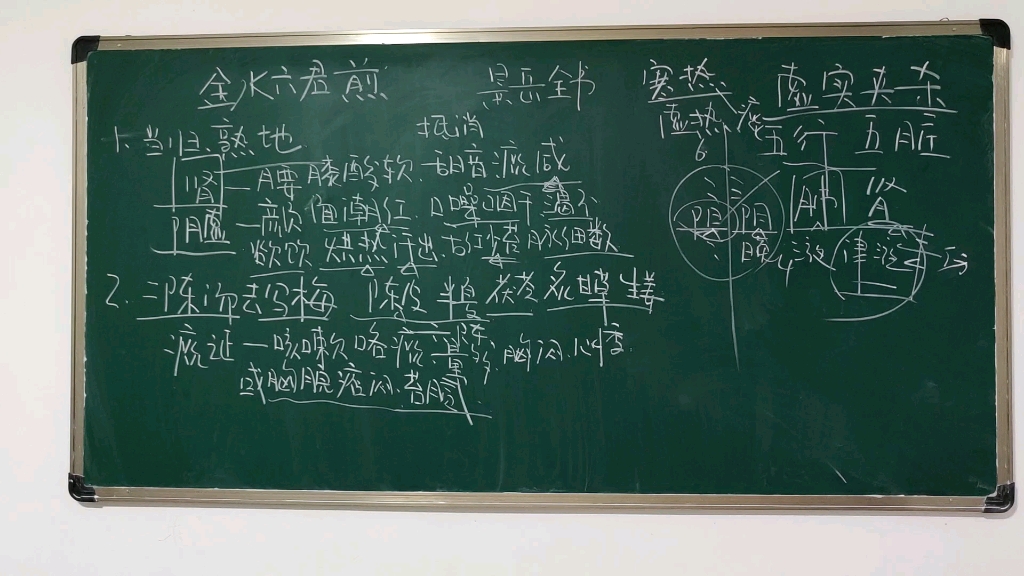 金水六君煎 景岳全书
抵消
1. 当归、熟地
肾 — 腰膝酸软
阴虚 — 颧面潮红 口燥咽干
欲饮 烘热汗出 脉细数
2. 二陈汤去乌梅 陈皮 半夏 茯苓 炙甘草 生姜
痰证 — 咳嗽咯痰量多 胸闷 心悸
或胸脘痞闷 苔腻
实热 虚实夹杂
虚热 痰 五行 五脏
6
阴 阳 肺 肾
4 津液